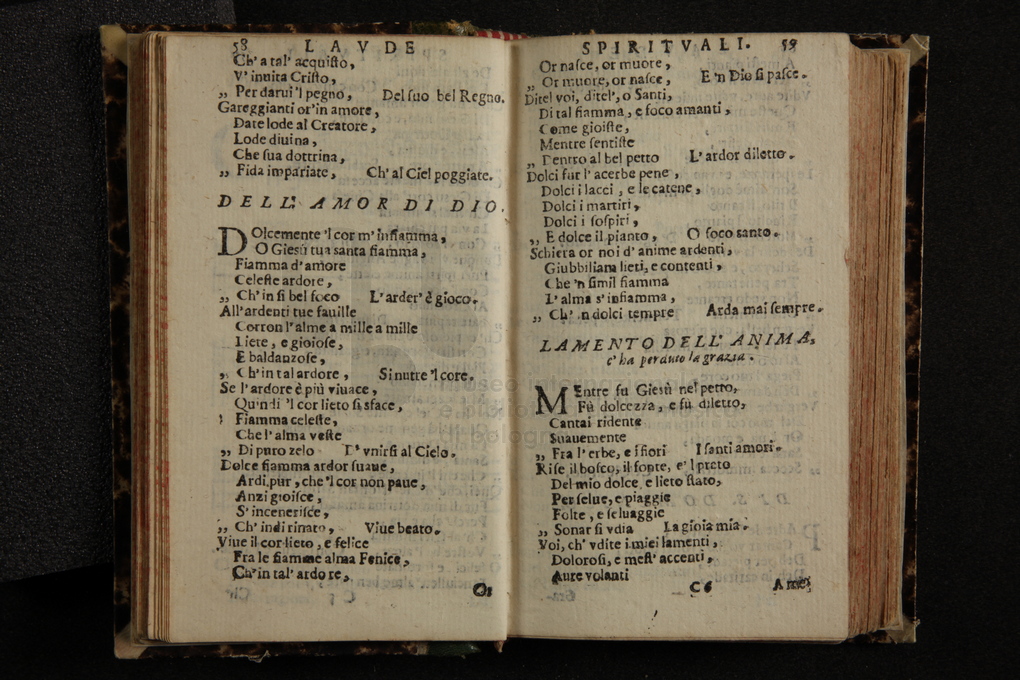 58 LAVDE
Ch' a tal' acquiſto,
V' inuita Criſto,
„ Per darui 'l pegno, Del ſuo bel Regno.
Gareggianti or' in amore,
Date lode al Creatore,
Lode diuina,
Che ſua dottrina,
„ Fida impariate, Ch' al Ciel poggiate.
DELL' AMOR DI DIO.
DOlcemente 'l cor m' infiamma,
O Gieſù tua santa fiamma,
Fiamma d' amore
Celeſte ardore,
„ Ch' in ſi bel foco L' arder' è gioco.
All' ardenti tue fauille
Corron l' alme a mille a mille
Liete, e gioioſe,
E baldanzoſe,
„ Ch' in tal ardore, Si nutre 'l core.
Se l' ardore è più viuace,
Quindi 'l cor lieto ſi sface,
Fiamma celeſte,
Che l' alma veſte
„ Di puro zelo D' vnirſi al Cielo.
Dolce fiamma ardor ſuaue,
Ardi pur, che 'l cor non paue,
Anzi gioiſce,
S' inceneriſce,
„ Ch' indi rinato, Viue beato.
Viue il cor lieto, e felice
Fra le fiamme alma Fenice,
Ch' in tal' ardore,
Or
SPIRITVALI. 59
Or naſce, or muore,
„ Or muore, or naſce, E 'n Dio ſi paſce.
Ditel voi, ditel', o Santi,
Di tal fiamma, e foco amanti,
Come gioiſte,
Mentre ſentiſte
„ Dentro al bel petto L' ardor diletto.
Dolci fur l' acerbe pene,
Dolci i lacci, e le catene,
Dolci i martiri,
Dolci i ſoſpiri,
„ E dolce il pianto, O foco santo.
Schiera or noi d' anime ardenti,
Giubbiliam lieti, e contenti,
Che 'n ſimil fiamma
L' alma s' infiamma,
„ Ch' 'n dolci tempre Arda mai ſempre.
LAMENTO DELL' ANIMA,
c' ha perduto la grazia.
MEntre fu Gieſù nel petto,
Fù dolcezza, e fù diletto,
Cantai ridente
Suauemente
„ Fra l' erbe, e i fiori I ſanti amori.
Riſe il boſco, il fonte, e 'l prato
Del mio dolce, e lieto ſtato,
Per ſelue, e piaggie
Folte, e ſeluaggie
„ Sonar ſi vdia La gioia mia.
Voi, ch' vdite i miei lamenti,
Doloroſi, e meſt' accenti,
Aure volanti
C6 A me